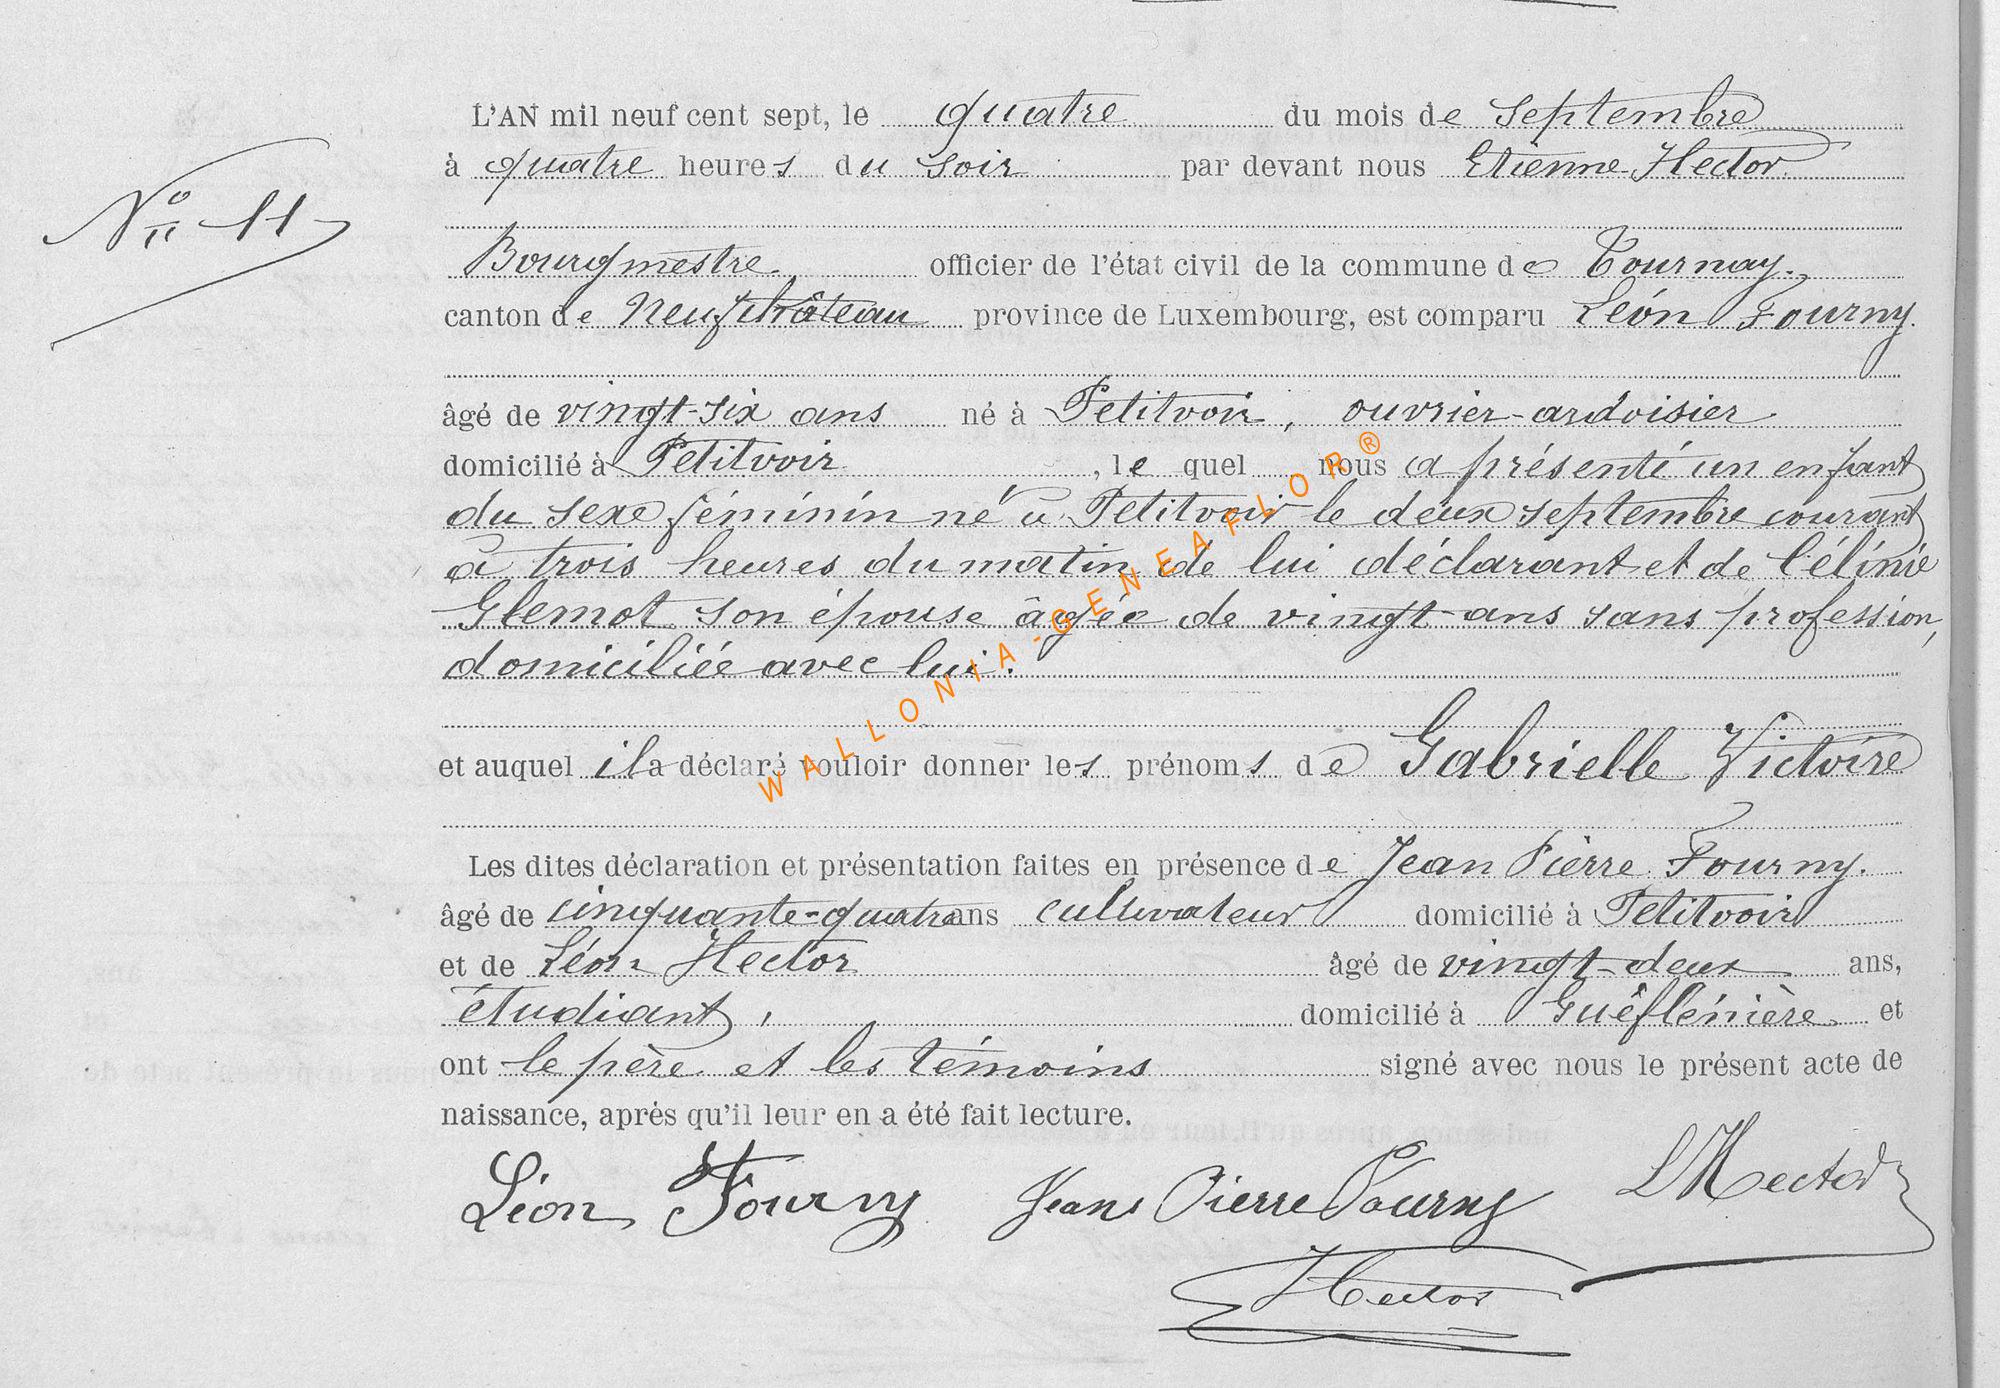 L'AN mil neuf cent sept, le quatre du mois de Septembre
à quatre heures du soir par devant nous Etienne Hector
N° 11
Bourgmestre, officier de l'état civil de la commune de Tournay,
canton de Neufchâteau province de Luxembourg, est comparu Léon Fourny.
âgé de vingt-six ans né à Petitvoir, ouvrier-ardoisier
domicilié à Petitvoir, le quel nous a présenté un enfant
du sexe féminin né à Petitvoir le deux septembre courant
à trois heures du matin de lui déclarant et de Célinie
Glemot son épouse âgée de vingt ans sans profession,
domiciliée avec lui.
et auquel il a déclaré vouloir donner les prénoms de Gabrielle Victoire
Les dites déclaration et présentation faites en présence de Jean Pierre Fourny.
âgé de cinquante-quatre ans cultivateur domicilié à Petitvoir
et de Léon Hector âgé de vingt-deux ans,
étudiant, domicilié à Guêflénière et
ont le père et les témoins signé avec nous le présent acte de
naissance, après qu'il leur en a été fait lecture.
Léon Fourny Jean Pierre Fourny L Hector
Hector
WALLONIA-GENEAFLOR®